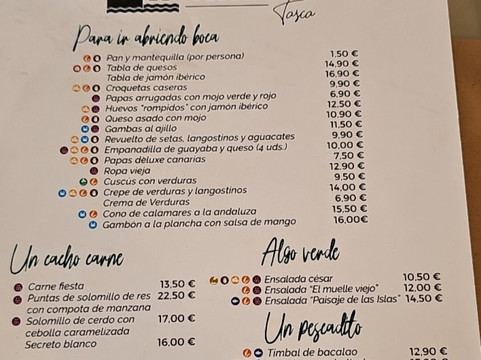 Tasca
Para ir abriendo boca
Pan y mantequilla (por persona) 1,50 €
Tabla de quesos 14,90 €
Tabla de jamón ibérico 16,90 €
Croquetas caseras 9,90 €
Papas arrugadas con mojo verde y rojo 6,90 €
Huevos "rompidos" con jamón ibérico 12,50 €
Queso asado con mojo 10,90 €
Gambas al ajillo 11,50 €
Revuelto de setas, langostinos y aguacates 9,90 €
Empanadilla de guayaba y queso (4 uds.) 10,00 €
Papas deluxe canarias 7,50 €
Ropa vieja 12,90 €
Cuscús con verduras 9,50 €
Crepe de verduras y langostinos 14,00 €
Crema de Verduras 6,90 €
Cono de calamares a la andaluza 15,50 €
Gambón a la plancha con salsa de mango 16,00€
Un cacho carne
Carne fiesta 13,50 €
Puntas de solomillo de res 22,50 €
con compota de manzana
Solomillo de cerdo con 17,00 €
cebolla caramelizada
Secreto blanco 16,00 €
Algo verde
Ensalada césar 10,50 €
Ensalada "El muelle viejo" 12,00 €
Ensalada "Paisaje de las Islas" 14,50 €
Un pescadito
Timbal de bacalao 12,90 €